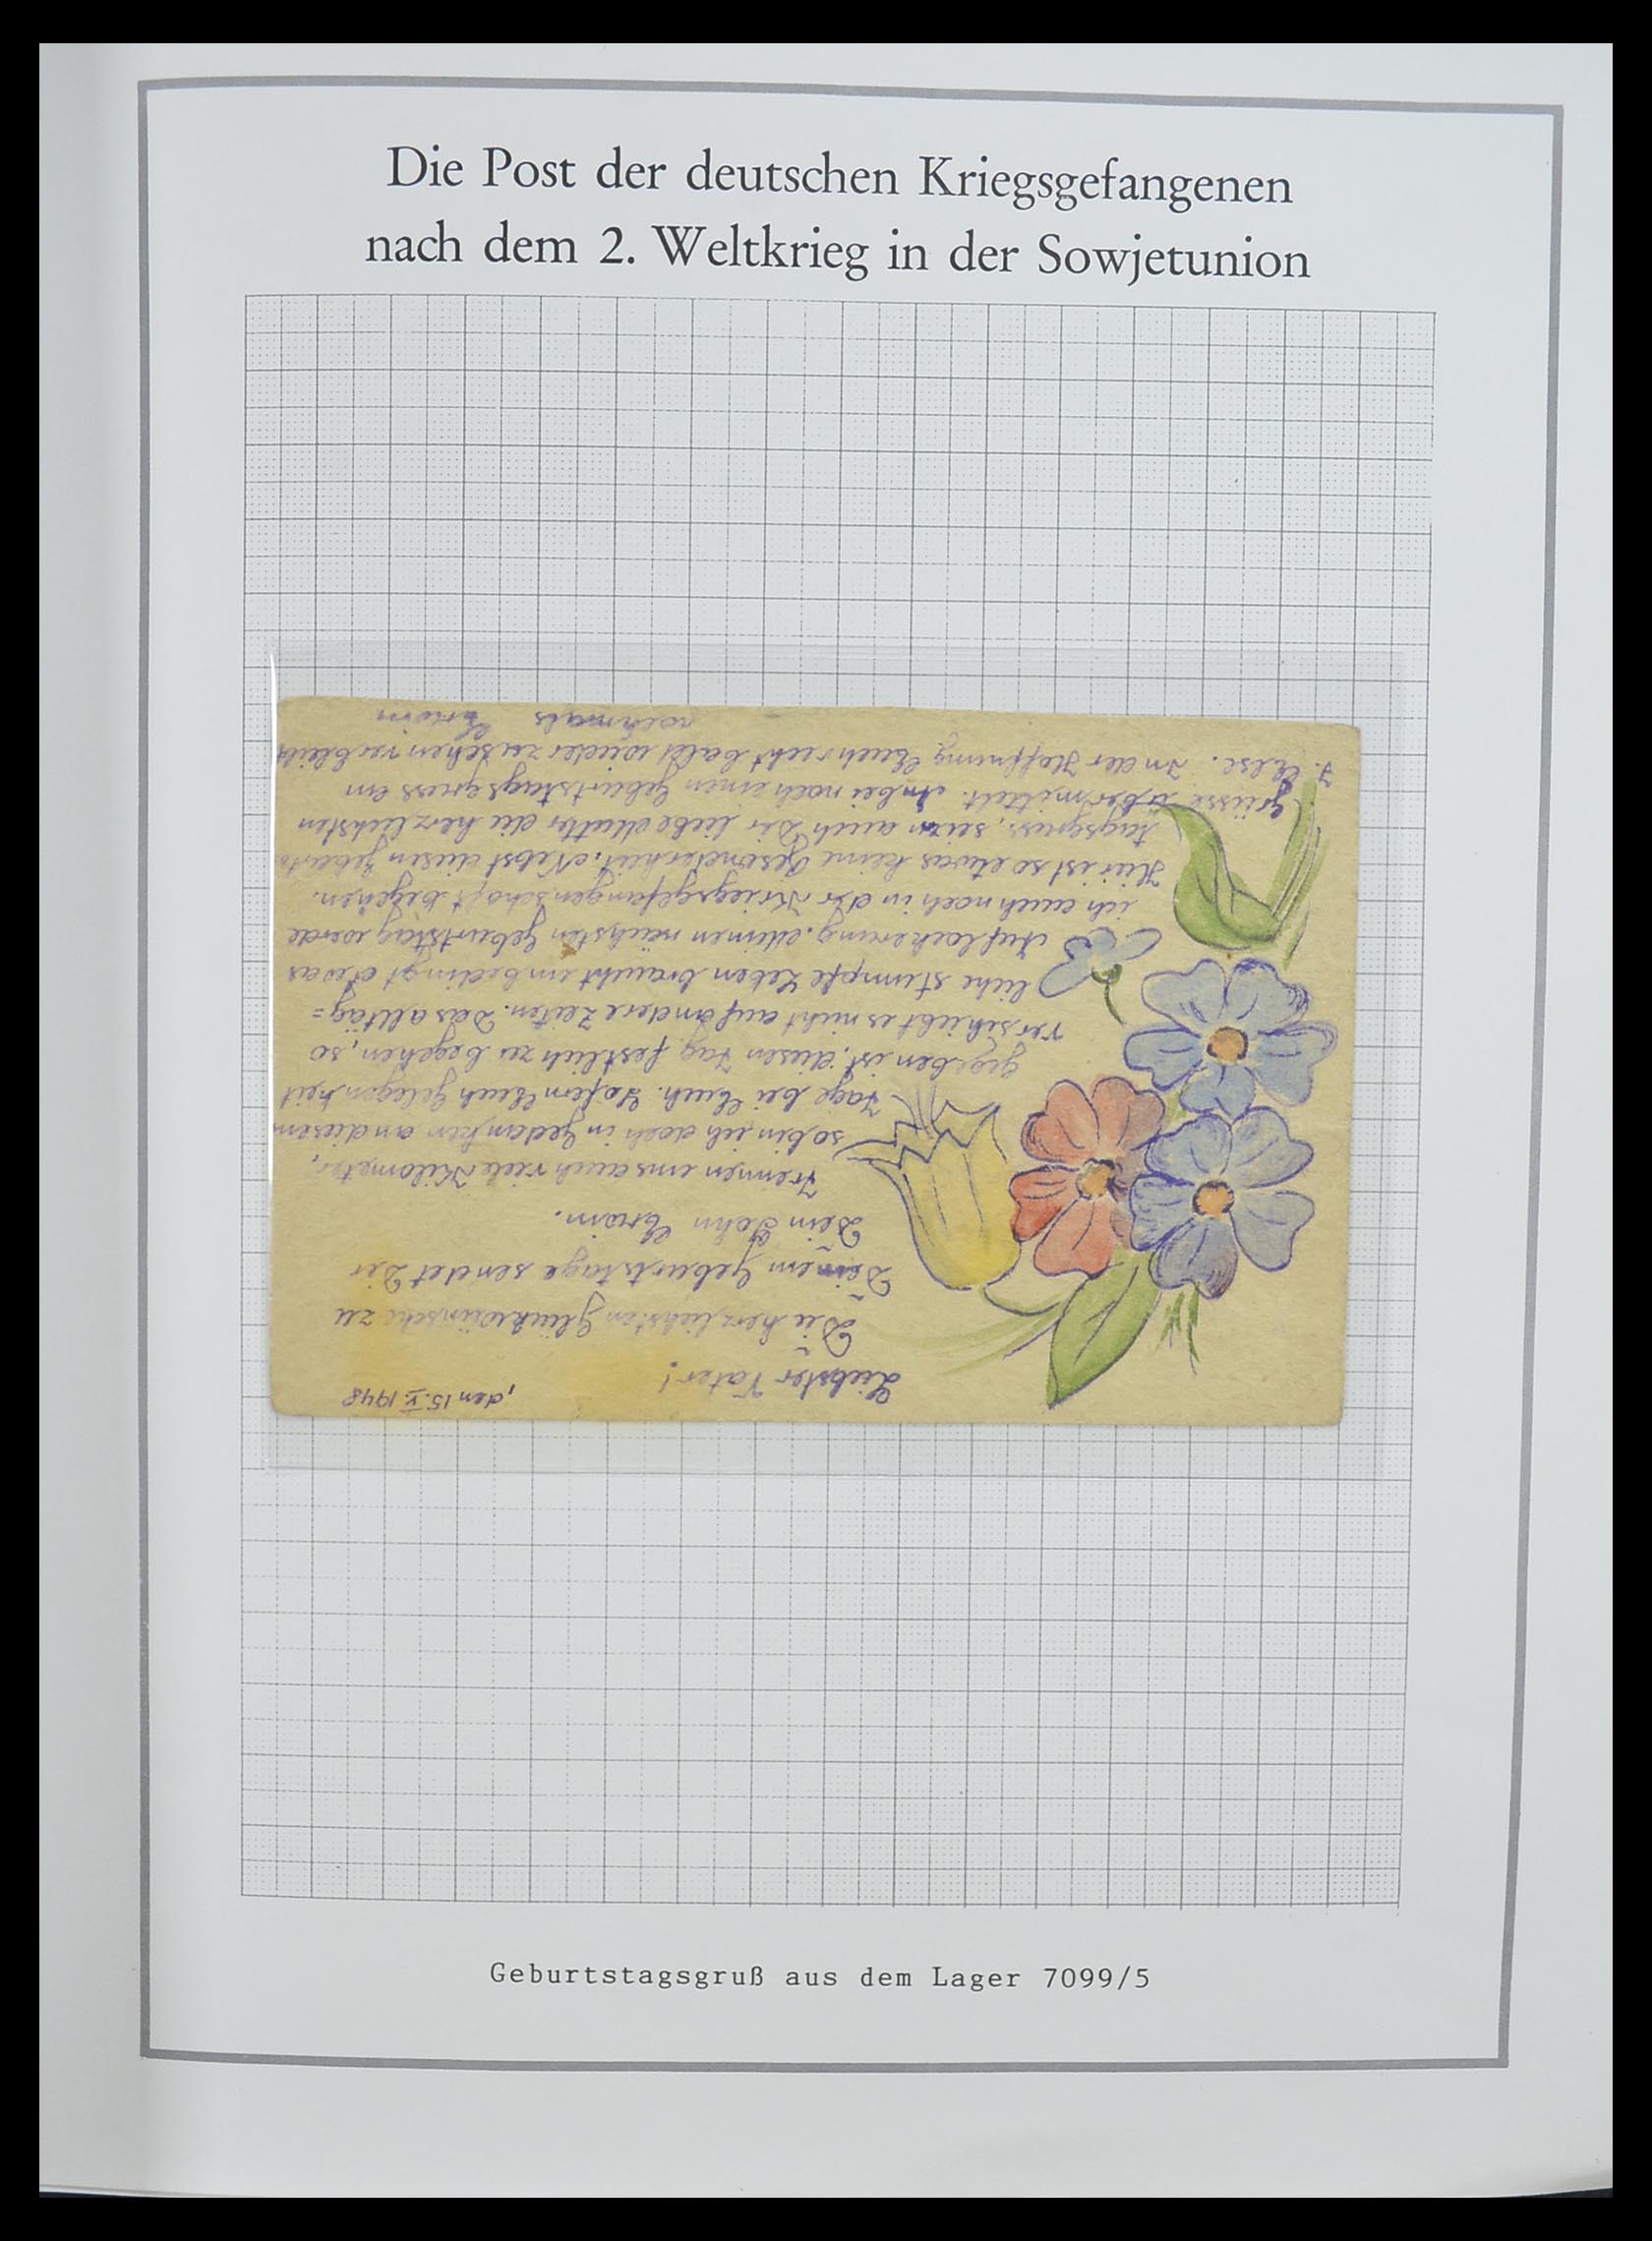 Die Post der deutschen Kriegsgefangenen
nach dem 2. Weltkrieg in der Sowjetunion
, den 15.V. 1948
Liebster Vater!
Die herzlichsten Glückwünsche zu
Deinem Geburtstage sendet Dir
Dein Sohn Erwin.
Trennen uns auch viele Kilometer,
so bin ich doch in Gedanken an diesem
Tage bei Euch. Sofern Euch Gelegenheit
gegeben ist, diesen Tag festlich zu begehen, so
verschiebt es nicht auf andere Zeiten. Das alltäg=
liche stumpfe Leben braucht unbedingt etwas
Auflockerung. Meinen nächsten Geburtstag werde
ich auch noch in der Kriegsgefangenschaft begehen.
Hier ist so etwas keine Besonderheit. Nebst diesen Geburts
tagsgruss, seien auch Dir liebe Mutter die herzlichsten
Grüsse übermittelt. Anbei noch einen Geburtstagsgruss an
Else. In der Hoffnung Euch recht bald wieder zu sehen verbleibt
nochmals Erwin
Geburtstagsgruß aus dem Lager 7099/5